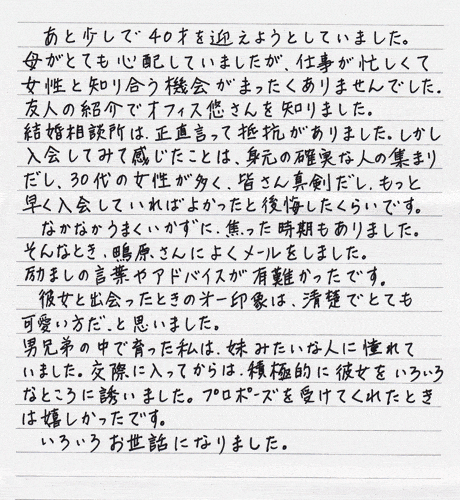 あと少しで40才を迎えようとしていました。
母がとても心配していましたが、仕事が忙しくて
女性と知り合う機会がまったくありませんでした。
友人の紹介でオフィス悠さんを知りました。
結婚相談所は、正直言って抵抗がありました。しかし
入会してみて感じたことは、身元の確実な人の集まり
だし、30代の女性が多く、皆さん真剣だし、もっと
早く入会していればよかったと後悔したくらいです。
なかなかうまくいかずに、焦った時期もありました。
そんなとき、鴨原さんによくメールをしました。
励ましの言葉やアドバイスが有難かったです。
彼女と出会ったときの才一印象は、清楚でとても
可愛い方だ、と思いました。
男兄弟の中で育った私は、妹みたいな人に憧れて
いました。交際に入ってからは、積極的に彼女をいろいろ
なところに誘いました。プロポーズを受けてくれたとき
は嬉しかったです。
いろいろお世話になりました。